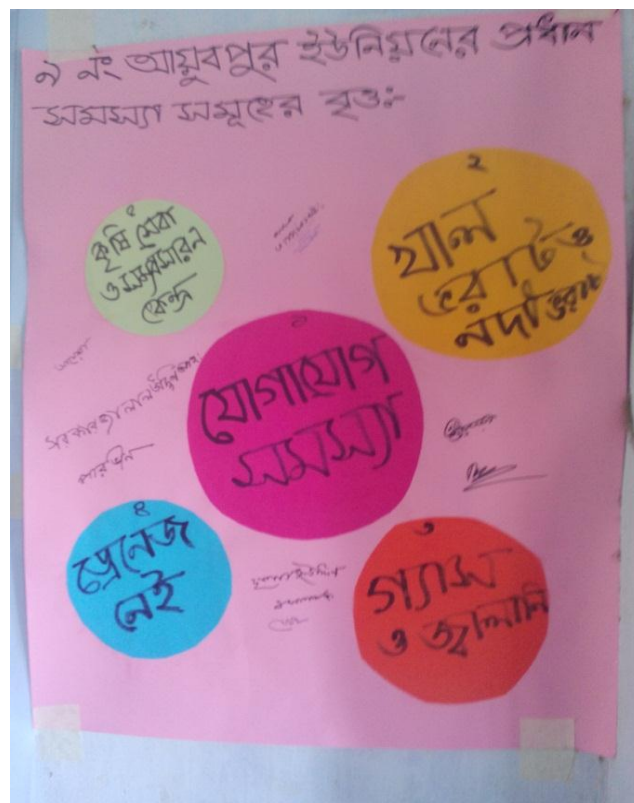 ৯ নং আয়ুবপুর ইউনিয়নের প্রধান
সমস্যা সমূহের বৃত্তঃ-
৫
কৃষি সেবা
ও সম্প্রসারন
কেন্দ্র
২
খাল
ভরাট ও
নদী ভরাট
১
যোগাযোগ
সমস্যা
পারভীন
৪
ড্রেনেজ
নেই
৩
গ্যাস
ও জ্বালানি